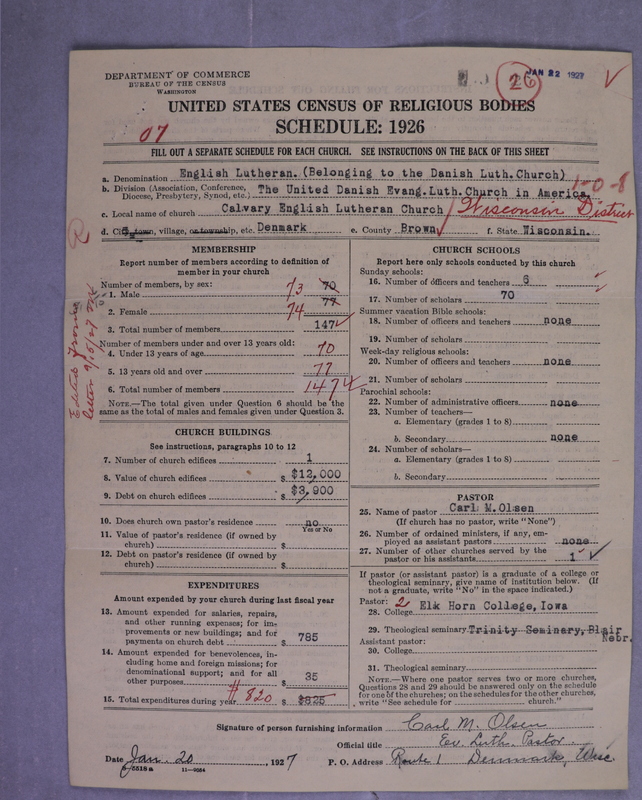 DEPARTMENT OF COMMERCE
BUREAU OF THE CENSUS
WASHINGTON
26
JAN 22 1927
UNITED STATES CENSUS OF RELIGIOUS BODIES
SCHEDULE: 1926
07
FILL OUT A SEPARATE SCHEDULE FOR EACH CHURCH. SEE INSTRUCTIONS ON THE BACK OF THIS SHEET
a. Denomination English Lutheran. (Belonging to the Danish Luth. Church)
b. Division (Association, Conference, Diocese, Presbytery, Synod, etc.) The United Danish Evang. Luth. Church in America. 1-0-8
c. Local name of church Calvary English Lutheran Church / Wisconsin District
d. City, town, village, or township, etc. Denmark e. County Brown f. State Wisconsin.
R
Edited from letter 9/15/27
MEMBERSHIP
Report number of members according to definition of
member in your church
Number of members, by sex:
1. Male 73 70
2. Female 74 77
3. Total number of members 147
Number of members under and over 13 years old:
4. Under 13 years of age 70
5. 13 years old and over 77
6. Total number of members 147
NOTE.—The total given under Question 6 should be the
same as the total of males and females given under Question 3.
CHURCH BUILDINGS
See instructions, paragraphs 10 to 12
7. Number of church edifices 1
8. Value of church edifices $ $12,000
9. Debt on church edifices $ $3,900
10. Does church own pastor's residence no
Yes or No
11. Value of pastor's residence (if owned by
church) $
12. Debt on pastor's residence (if owned by
church) $
EXPENDITURES
Amount expended by your church during last fiscal year
13. Amount expended for salaries, repairs,
and other running expenses; for im-
provements or new buildings; and for
payments on church debt $ 785
14. Amount expended for benevolences, in-
cluding home and foreign missions; for
denominational support; and for all
other purposes $ 35
15. Total expenditures during year #820 $ $825
CHURCH SCHOOLS
Report here only schools conducted by this church
Sunday schools:
16. Number of officers and teachers 6
17. Number of scholars 70
Summer vacation Bible schools:
18. Number of officers and teachers none
19. Number of scholars
Week-day religious schools:
20. Number of officers and teachers none
21. Number of scholars
Parochial schools:
22. Number of administrative officers none
23. Number of teachers—
a. Elementary (grades 1 to 8)
b. Secondary none
24. Number of scholars—
a. Elementary (grades 1 to 8)
b. Secondary
PASTOR
25. Name of pastor Carl M. Olsen
(If church has no pastor, write "None")
26. Number of ordained ministers, if any, em-
ployed as assistant pastors none
27. Number of other churches served by the
pastor or his assistants 1
If pastor (or assistant pastor) is a graduate of a college or
theological seminary, give name of institution below. (If
not a graduate, write "No" in the space indicated.)
Pastor: 2
28. College Elk Horn College, Iowa
29. Theological seminary Trinity Seminary, Blair
Nebr.
Assistant pastor:
30. College
31. Theological seminary
NOTE.—Where one pastor serves two or more churches,
Questions 28 and 29 should be answered only on the schedule
for one of the churches; on the schedules for the other churches,
write "See schedule for church."
Signature of person furnishing information Carl M. Olsen
Official title Ev. Luth. Pastor
Date Jan. 20, 1927 P. O. Address Route 1 Denmark, Wisc.
11—9584